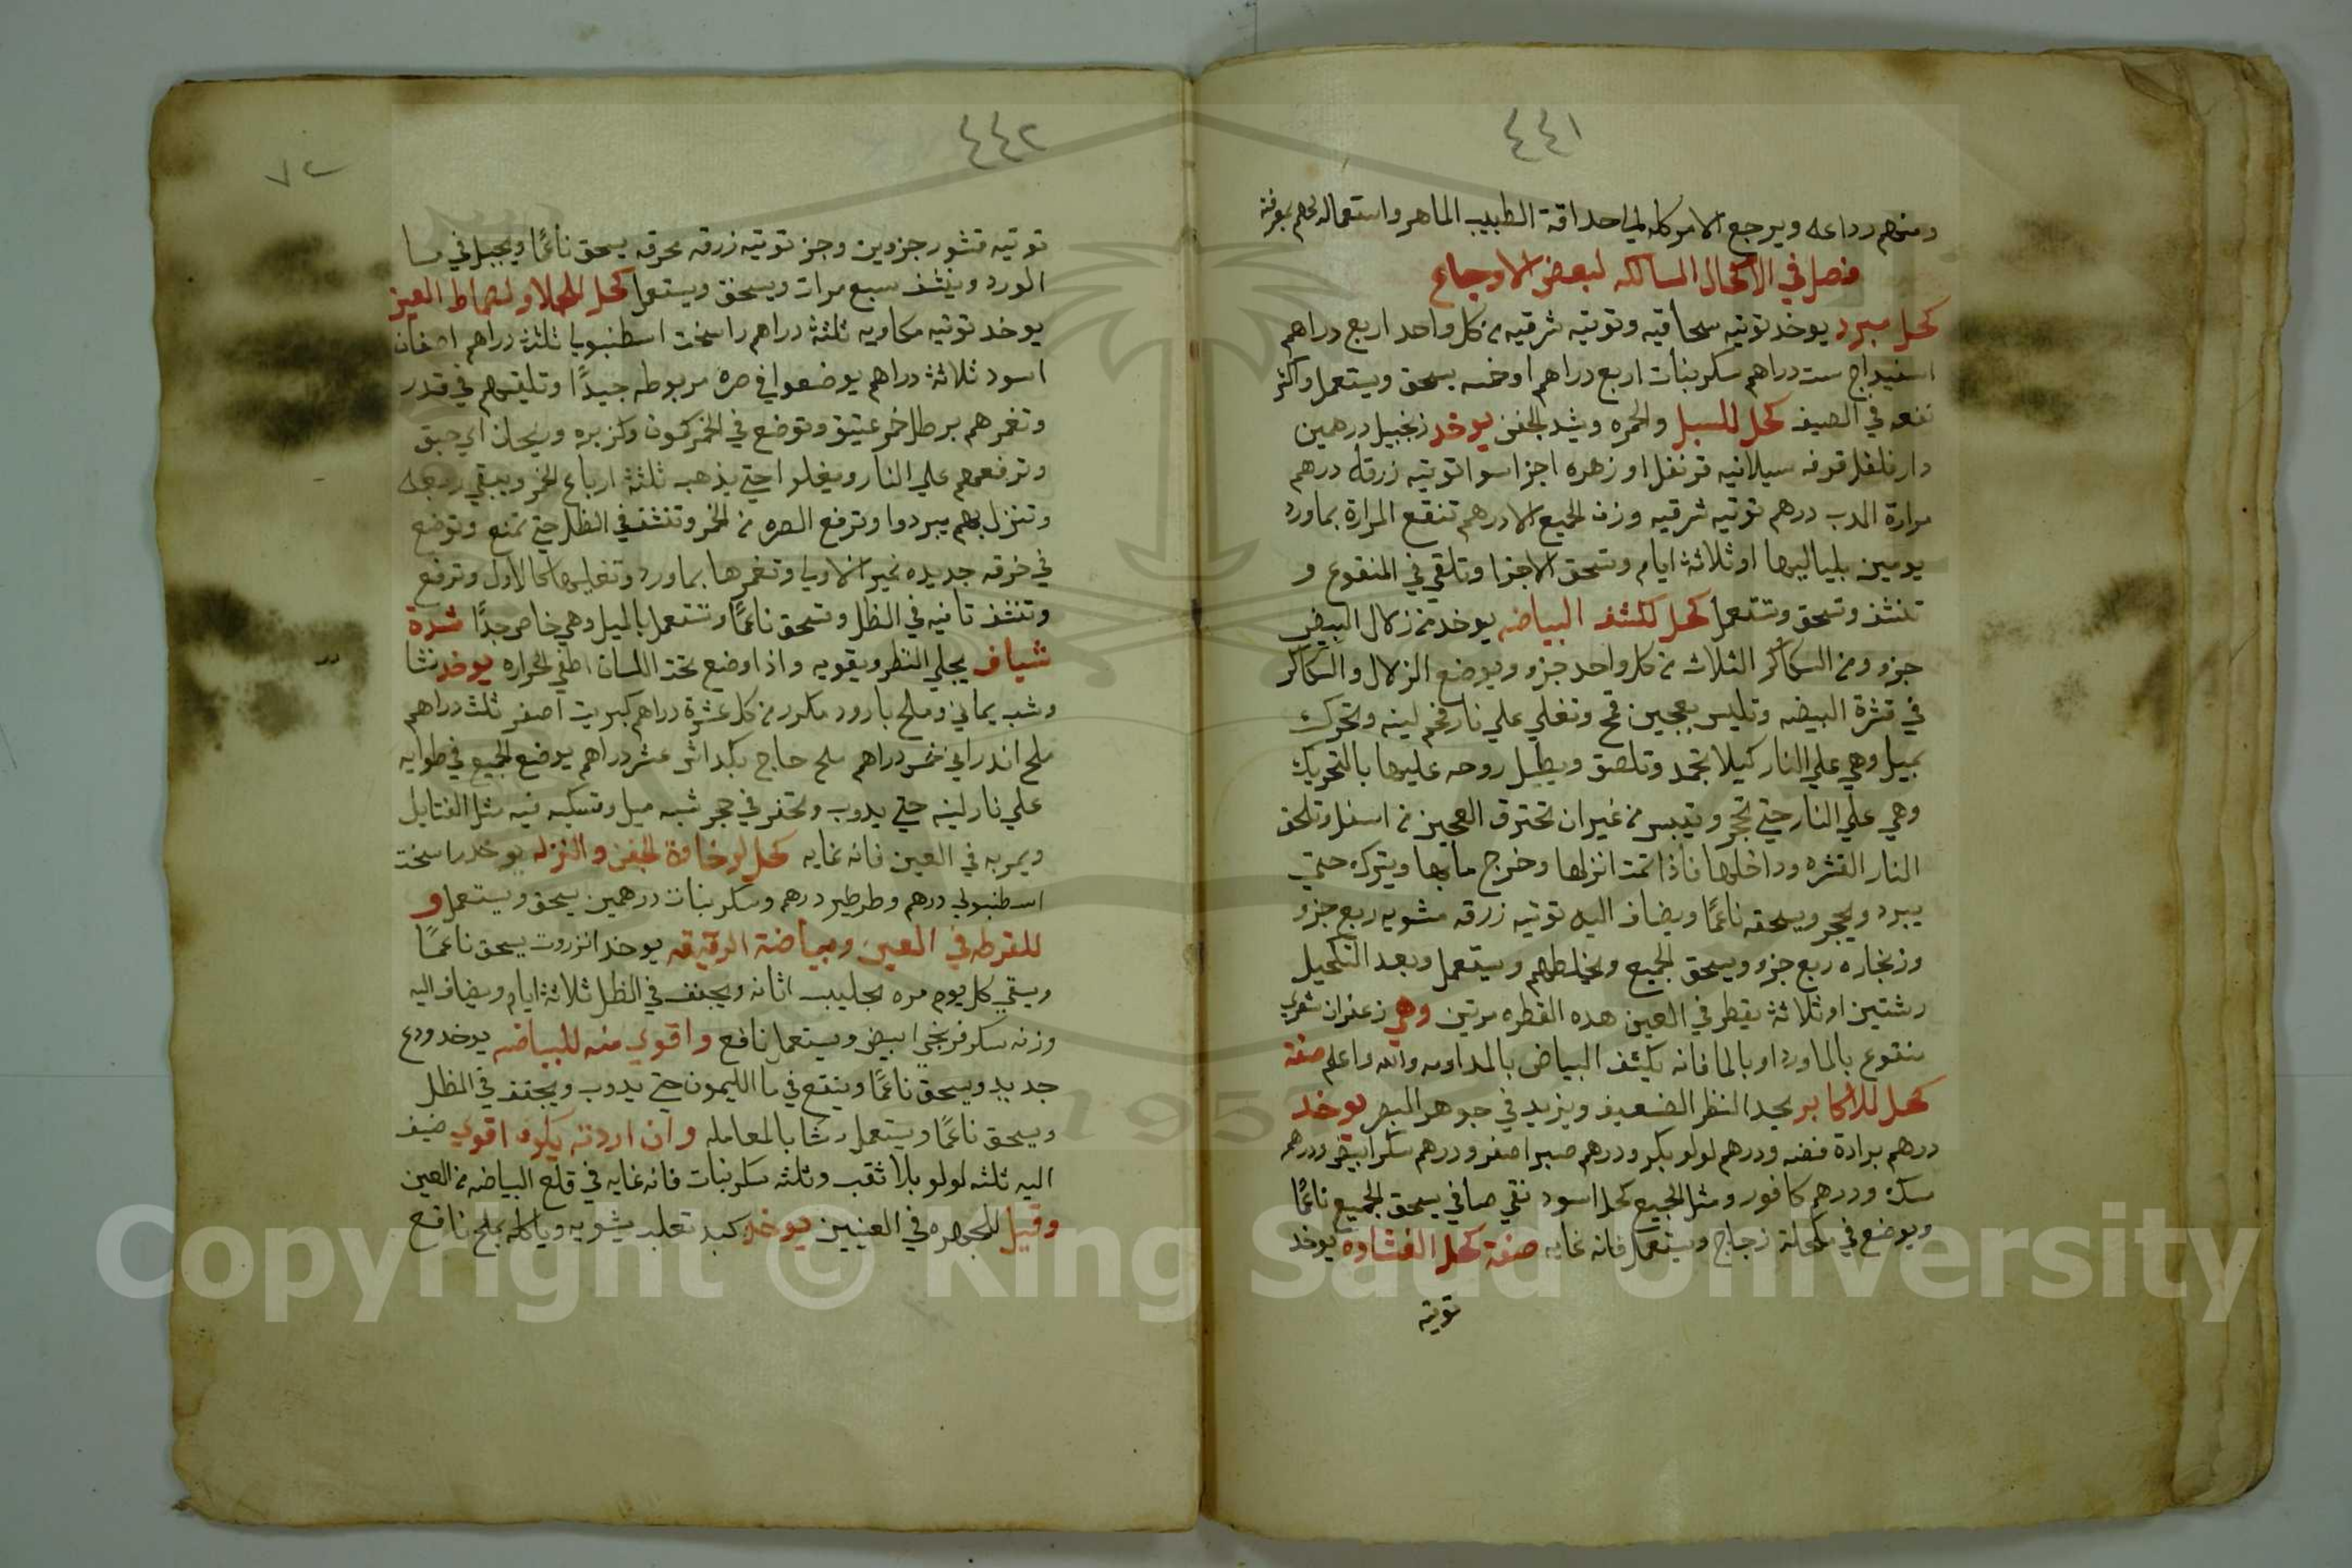 ٤٤١
ومنهم رداعه ويرجع الامر كله الي احداقة الطبيب الماهر واستعماله لهم بمعرفته
فصل في الاكحال المسالكه لبعض الاوجاع
كحل مبرد يوخد توتيه سحاقيه وتوتيه شرقيه من كل واحد اربع دراهم
اسفيداج ست دراهم سكر بنات اربع دراهم او خمسه يسحق ويستعمل واكثر
نفعه في الصيف كحل للسبل والحمره ويشد الجفن يوخد زنجبيل درهمين
دار فلفل قرفه سيلانيه قرنفل او زهره اجزا سوا توتيه زرقه درهم
مرارة الدب درهم توتيه شرقيه وزن الجميع الا درهم تنقع المرارة بماورد
يومين بلياليها او ثلاثة ايام وتسحق الاجزا وتلقي في المنقوع و
تنشف وتسحق وتستعمل كحل لكشف البياضه يوخد من زلال البيض
جزو ومن السكاكر الثلاث من كل واحد جزو ويوضع الزلال والسكاكر
في قشرة البيضه وتلبس بعجين قمح وتغلي علي نار فحم لينه وتحرك
بميل وهي علي النار كيلا تجمد وتلصق ويطيل روحه عليها بالتحريك
وهي علي النار حتي تحجر وتيبس من غير ان تحترق العجين من اسفل وتلحق
النار القشره وداخلها فاذا تمت انزلها وخرج ما بها ويتركه حتي
يبرد ويحجر ويسحقه ناعمًا ويضاف اليه توتيه زرقه مشويه ربع جزو
وزنجاره ربع جزو ويسحق الجميع ويخلطهم ويستعمل وبعد التكحيل
رشتين او ثلاثة يقطر في العين هده القطره مرتين وهي زعفران شعري
منقوع بالماورد او بالما فانه يكشف البياض بالمداومه والله واعلم صفة
كحل للاكابر يحد النظر الضعيف ويزيد في جوهر البصر يوخد
درهم برادة فضه ودرهم لولو بكر ودرهم صبر اصفر ودرهم سكر ابيض ودرهم
مسك ودرهم كافور ومثل الجميع كحل اسود نقي صافي يسحق الجميع ناعمًا
ويوضع في مكحلة زجاج ويستعمل فانه غايه صفة كحل الغشاوة يوخد
توتيه
٤٤٢
٧٢
توتيه قشور جزوين وجز توتيه زرقه محرقه يسحق ناعمًا ويجبل في ما
الورد وينشف سبع مرات ويسحق ويستعمل كحل للجلا ولصماط العين
يوخد توتيه مكاويه ثلثة دراهم راسخت اسطنبوليا ثلثة دراهم اصفان
اسود ثلاثة دراهم يوضعوا في صره مربوطه جيدًا وتلقيهم في قدر
وتغمرهم برطل خمر عتيق وتوضع في الخمر كمون وكزبره وريحان اي حبق
وترفعهم علي النار ويغلوا حتي يذهب ثلثة ارباع الخمر ويبقي ربعه
وتنزل بهم يبردوا وترفع الصره من الخمر وتنشف في الظل حتي تمنع وتوضع
في خرقه جديده غير الاوليا وتغمرها بماورد وتغليها كالاول وترفع
وتنشف ثانيه في الظل وتسحق ناعمًا وتستعمل بالميل وهي خاص جدًا شدة
شياف يجلي النظر ويقويه واذا وضع تحت اللسان اطفي الحراره يوخد نشا
وشب يماني وملح بارود مكرر من كل عشرة دراهم كبريت اصفر ثلث دراهم
ملح اندراني خمس دراهم ملح حاج بكداش عشر دراهم يوضع الجميع في طوايه
علي نار لينه حتي يدوب وتحفر في حجر شبه ميل وتسكبه فيه مثل الفتايل
ويمر به في العين فانه غايه كحل لرخاوة الجفن والنزله يوخد راسخت
اسطنبولي درهم وطرطير درهم وسكر بنات درهمين يسحق ويستعمل و
للقرطه في العين وبياضة الرقيقه يوخد انزروت يسحق ناعمًا
ويسقي كل يوم مره بحليب اتانه ويجفف في الظل ثلاثة ايام ويضاف اليه
وزنه سكر فرنجي ابيض ويستعمل نافع واقوي منه للبياضه يوخد ودع
جديد ويسحق ناعمًا وينقع في ما الليمون حتي يدوب ويجفف في الظل
ويسحق ناعمًا ويستعمل رشا بالمعامله وان اردته يكون اقوي ضيف
اليه ثلثه لولو بلا ثقب وثلثه سكر نبات فانه غايه في قلع البياضه من العين
وقيل للجهره في العينين يوخد كبد تعلب يشويه وياكله بملح نافع
Copyright © King Saud University
1957